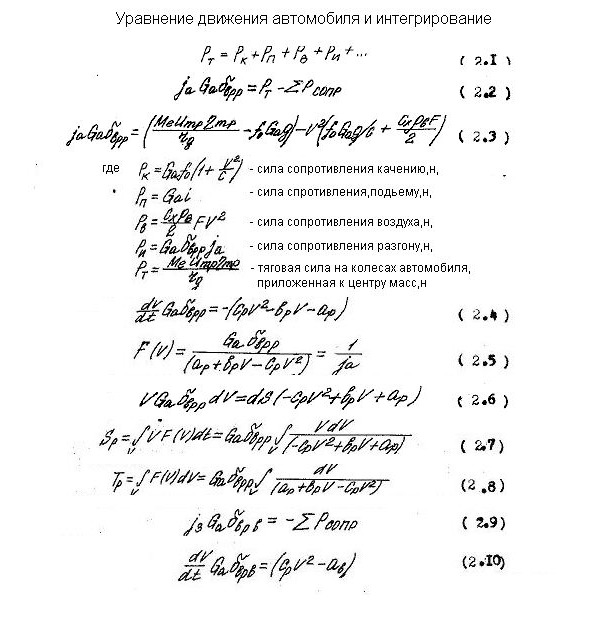 Уравнение движения автомобиля и интегрирование
Pт = Pк + Pп + Pв + Pи + ... (2.1)
ja Ga δврр = Pт - ΣPсопр (2.2)
ja Ga δврр = (Me Uтр ηтр / rд - f₀Gag) - V²(f₀Gag/c + CxρвF / 2) (2.3)
где Pк = Gaf₀(1 + V²/c) - сила сопротивления качению,н,
Pп = Gai - сила спротивления,подьему,н,
Pв = Cxρв / 2 FV² - сила сопротивления воздуха,н,
Pи = Ga δврр ja - сила сопротивления разгону,н,
Pт = Me Uтр ηтр / rд - тяговая сила на колесах автомобиля,
приложенная к центру масс,н
dV/dt Ga δврр = -(CрV² - bрV - aр) (2.4)
F(V) = Ga δврр / (aр + bрV - CрV²) = 1 / ja (2.5)
V Ga δврр dV = dS(-CрV² + bрV + aр) (2.6)
Sр = ∫V V F(V)dt = Ga δврр ∫V VdV / (-CрV² + bрV + aр) (2.7)
Tр = ∫V F(V)dV = Ga δврр ∫V dV / (aр + bрV - CрV²) (2.8)
jз Ga δврв = -ΣPсопр (2.9)
dV/dt Ga δврв = (CрV² - aв) (2.10)